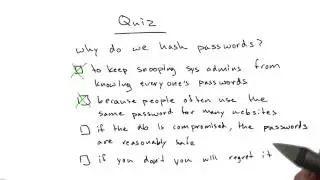 Quiz
why do we hash passwords?
to keep snooping sys admins from
knowing everyone's passwords
because people often use the
same password for many websites
if the db is compromised, the passwords
are reasonably safe
if you don't you will regret it